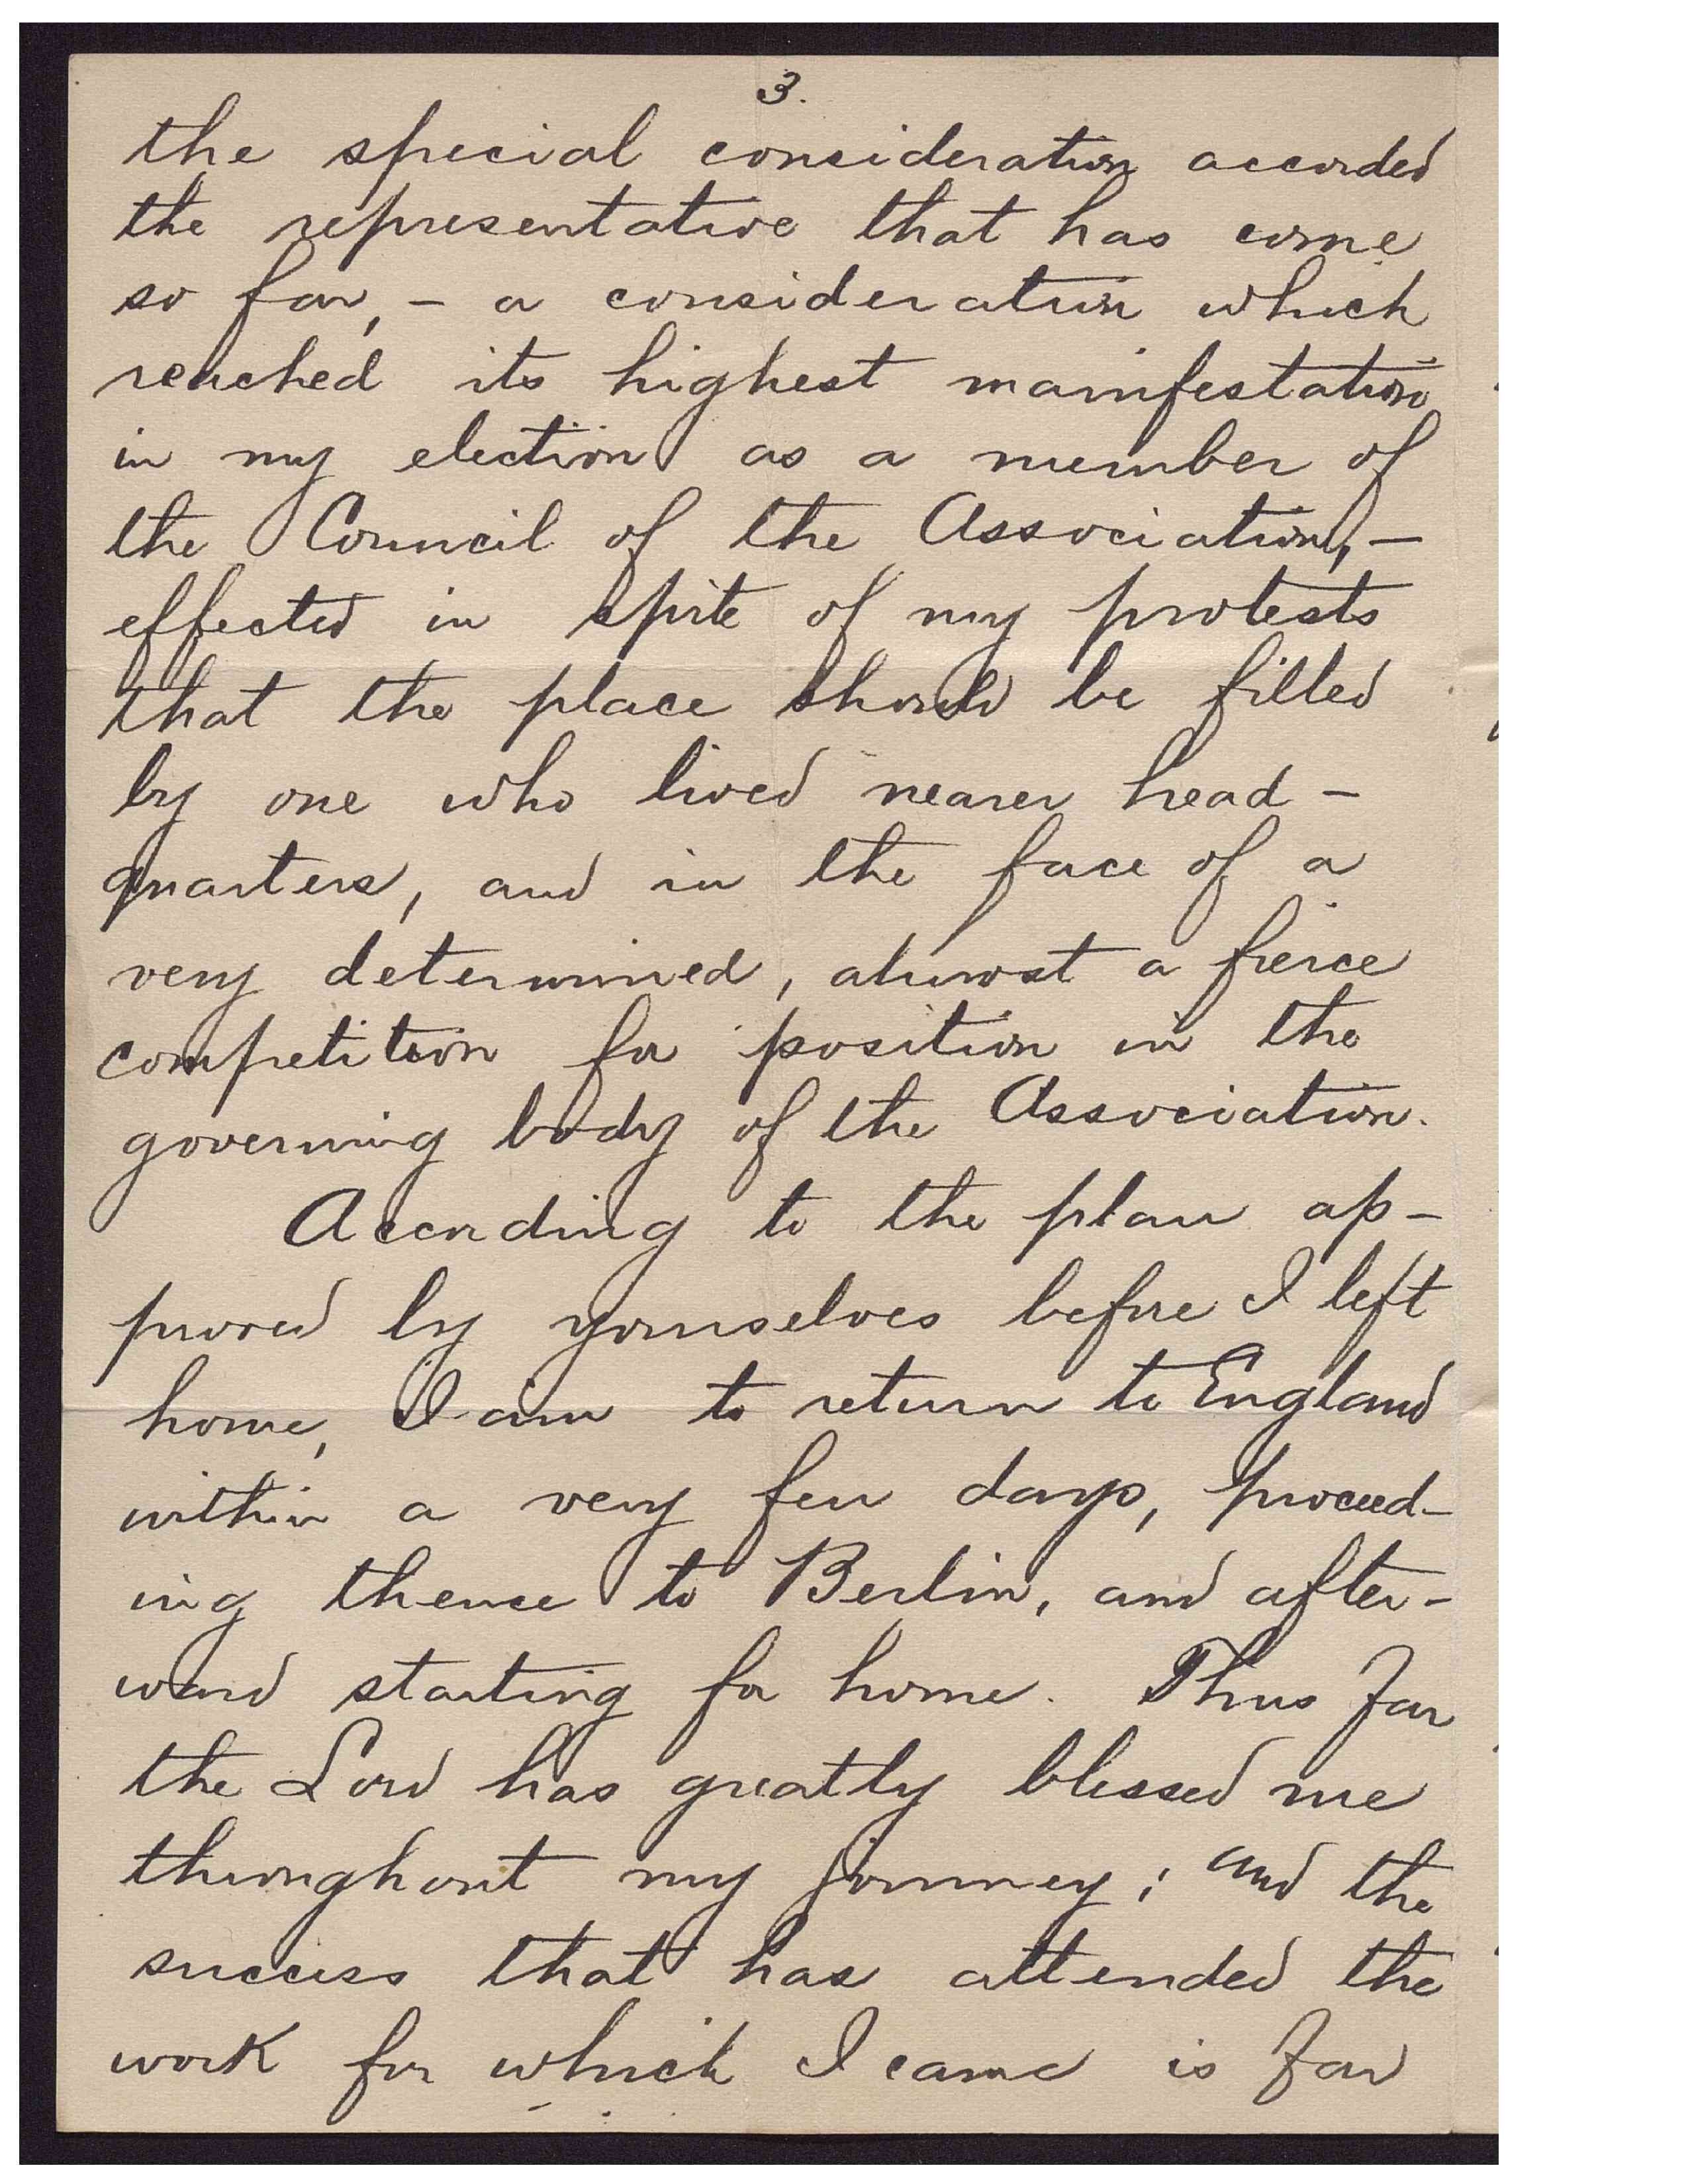 3.
the special consideration accorded
the representative that has come
so far, - a consideration which
reached its highest manifestation
in my election as a member of
the Council of the Association, -
effected in spite of my protests
that the place should be filled
by one who lived nearer head -
quarters, and in the face of a
very determined, almost a fierce
competition for position in the
governing body of the Association.
According to the plan ap -
proved by yourselves before I left
home, I am to return to England
within a very few days, proceed -
ing thence to Berlin, and after -
ward starting for home. Thus far
the Lord has greatly blessed me
throughout my journey; and the
success that has attended the
work for which I came is far